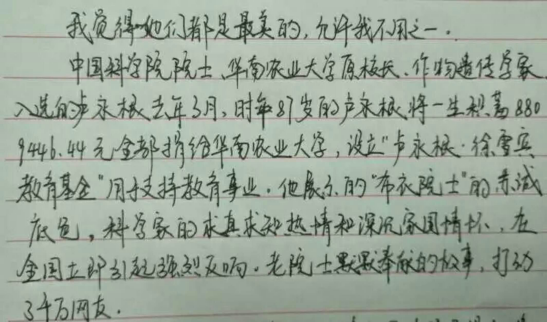 我觉得他们都是最美的,允许我不用之一.
中国科学院院士、华南农业大学原校长、作物遗传学家
入选的卢永根去年3月,时年87岁的卢永根将一生积蓄880
9446.44元全部捐给华南农业大学,设立"卢永根·徐雪宾
教育基金"用于支持教育事业.他展示的"布衣院士"的赤诚
底色,科学家的求真求知热情和深沉家国情怀、在
全国立即引起强烈反响.老院士默默奉献的故事,打动
3千万网友.